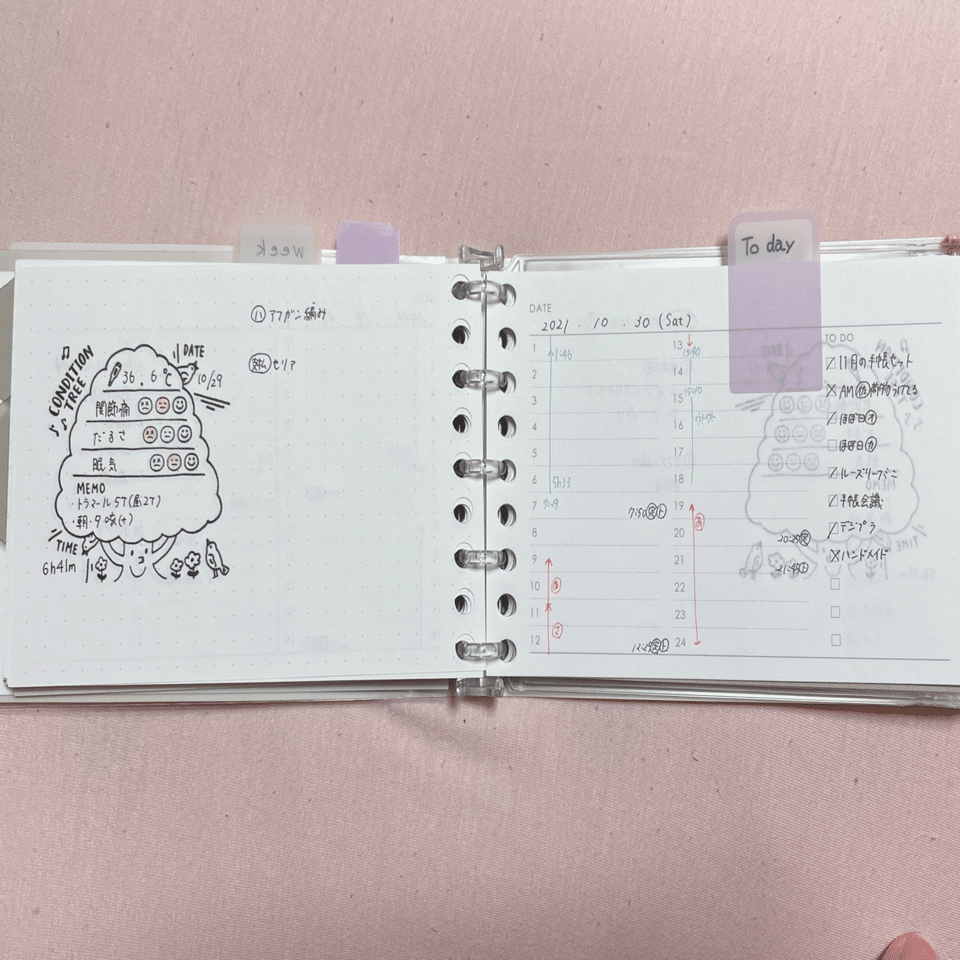 week
To day
㋩アフガン編み
セリア
CONDITION TREE
DATE
10/29
36.6℃
関節痛
だるさ
眠気
MEMO
・トラマール5T(昼2T)
・朝・夕 咳(+)
TIME
6h41m
DATE
2021 . 10 . 30 (Sat)
1
1:46
2
3
4
5
6
5:33
7
7:29
7:50
8
9
10
11
12
13
13:40
14
15:10
15
16
ウトウト
17
18
19
20
20:25
21
21:45
22
23
24
TO DO
11月の手帳セット
AM 荷物うけとる
ほぼ日㋔
ほぼ日㋕
ルーズリーフミニ
手帳会議
デジプラ
ハンドメイド